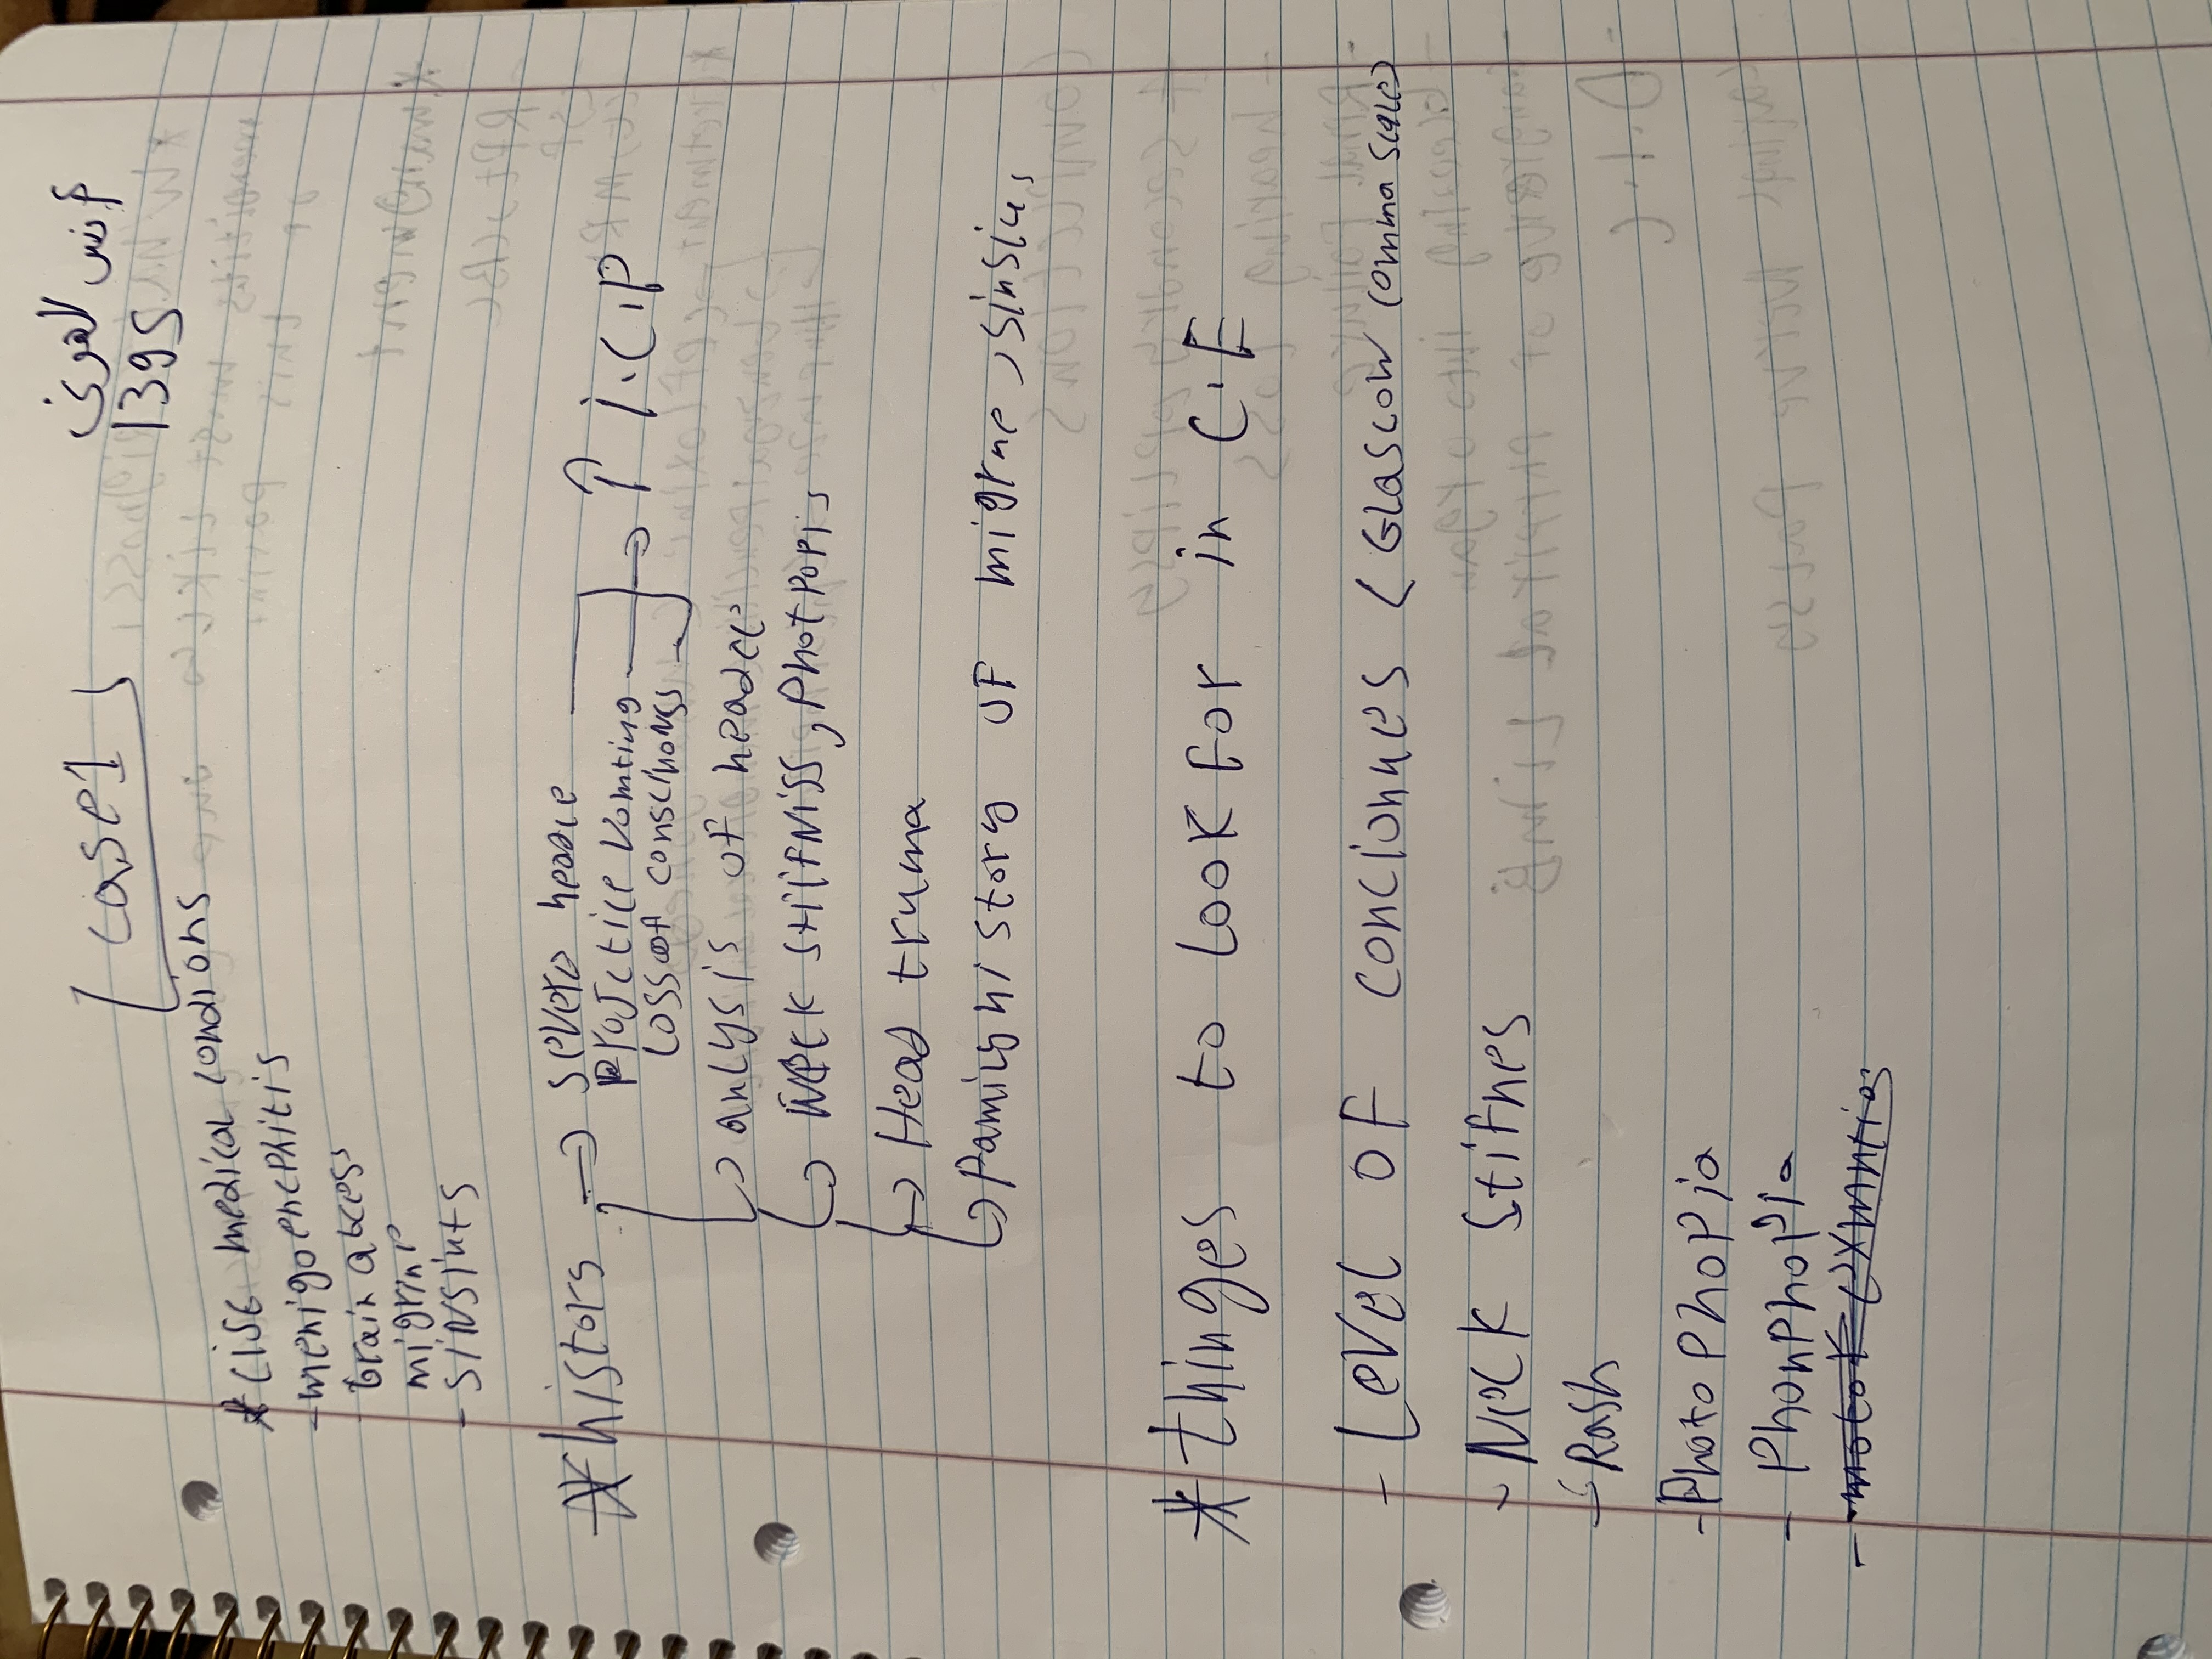 1395
Case 1
* List medical conditions
- menigoencephitis
brain abcess
migrine
- sinsints
* histors → severe headce
projectice vomting
Loss of conscihonss
→ ↑ i.C.P
↳ anlysis of headcc
↳ Neck stiifniss, Phot Popis
↳ Head truma
↳ Pamiy history of migrne, sinsius
* thinges to Look for in C.E
- Level of conciounes ( Glascow comma scale)
- Neck stifnes
- Rash
- Photo Phopia
- PhonPhopia